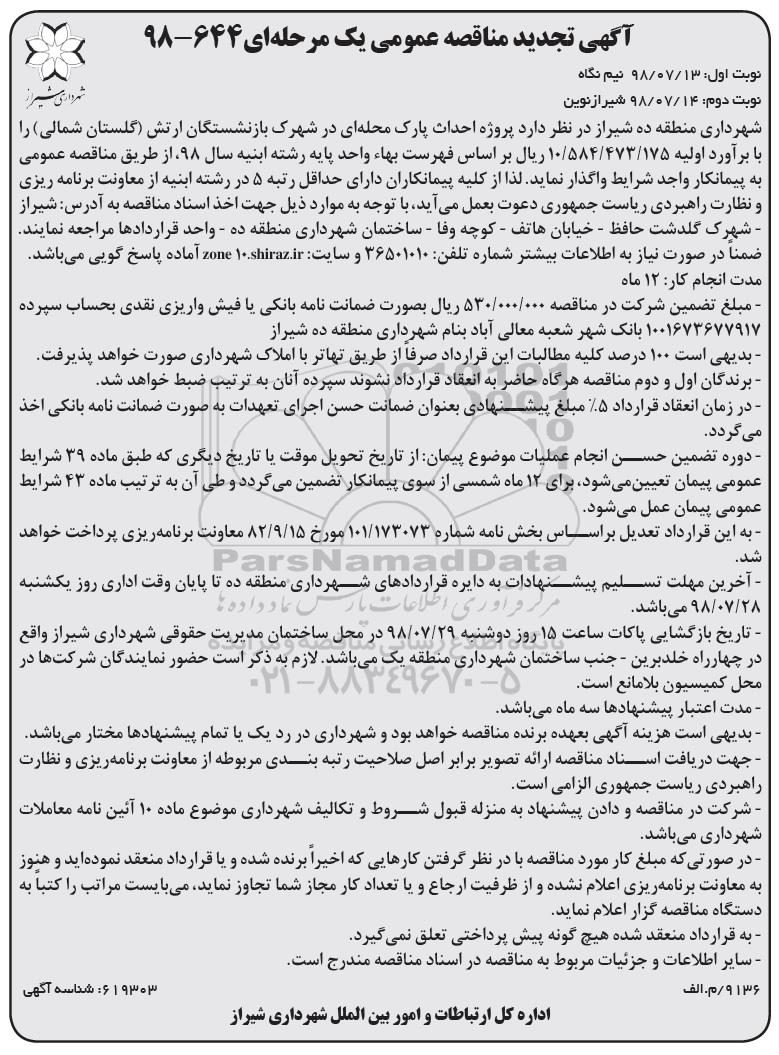 آگهی تجدید مناقصه عمومی یک مرحله‌ای ۶۴۴-۹۸
شهرداری شیراز
نوبت اول: ۹۸/۰۷/۱۳ نیم نگاه
نوبت دوم: ۹۸/۰۷/۱۴ شیرازنوین
شهرداری منطقه ده شیراز در نظر دارد پروژه احداث پارک محله‌ای در شهرک بازنشستگان ارتش (گلستان شمالی) را
با برآورد اولیه ۱۰/۵۸۴/۴۷۳/۱۷۵ ریال بر اساس فهرست بهاء واحد پایه رشته ابنیه سال ۹۸، از طریق مناقصه عمومی
به پیمانکار واجد شرایط واگذار نماید. لذا از کلیه پیمانکاران دارای حداقل رتبه ۵ در رشته ابنیه از معاونت برنامه ریزی
و نظارت راهبردی ریاست جمهوری دعوت بعمل می‌آید، با توجه به موارد ذیل جهت اخذ اسناد مناقصه به آدرس: شیراز
- شهرک گلدشت حافظ - خیابان هاتف - کوچه وفا - ساختمان شهرداری منطقه ده - واحد قراردادها مراجعه نمایند.
ضمناً در صورت نیاز به اطلاعات بیشتر شماره تلفن: ۳۶۵۰۱۰۱۰ و سایت: zone ۱۰.shiraz.ir آماده پاسخ گویی می‌باشد.
مدت انجام کار: ۱۲ ماه
- مبلغ تضمین شرکت در مناقصه ۵۳۰/۰۰۰/۰۰۰ ریال بصورت ضمانت نامه بانکی یا فیش واریزی نقدی بحساب سپرده
۱۰۰۱۶۷۳۶۷۷۹۱۷ بانک شهر شعبه معالی آباد بنام شهرداری منطقه ده شیراز
- بدیهی است ۱۰۰ درصد کلیه مطالبات این قرارداد صرفاً از طریق تهاتر با املاک شهرداری صورت خواهد پذیرفت.
- برندگان اول و دوم مناقصه هرگاه حاضر به انعقاد قرارداد نشوند سپرده آنان به ترتیب ضبط خواهد شد.
- در زمان انعقاد قرارداد ۵٪ مبلغ پیشنهادی بعنوان ضمانت حسن اجرای تعهدات به صورت ضمانت نامه بانکی اخذ
می‌گردد.
- دوره تضمین حسن انجام عملیات موضوع پیمان: از تاریخ تحویل موقت یا تاریخ دیگری که طبق ماده ۳۹ شرایط
عمومی پیمان تعیین‌می‌شود، برای ۱۲ ماه شمسی از سوی پیمانکار تضمین می‌گردد و طی آن به ترتیب ماده ۴۳ شرایط
عمومی پیمان عمل می‌شود.
- به این قرارداد تعدیل براساس بخش نامه شماره ۱۰۱/۱۷۳۰۷۳ مورخ ۸۲/۹/۱۵ معاونت برنامه‌ریزی پرداخت خواهد
شد.
ParsNamadData
- آخرین مهلت تسلیم پیشنهادات به دایره قراردادهای شهرداری منطقه ده تا پایان وقت اداری روز یکشنبه
۹۸/۰۷/۲۸ می‌باشد.
مرکز فرآوری اطلاعات پارس نماد داده‌ها
- تاریخ بازگشایی پاکات ساعت ۱۵ روز دوشنبه ۹۸/۰۷/۲۹ در محل ساختمان مدیریت حقوقی شهرداری شیراز واقع
پایگاه اطلاع رسانی مناقصه و مزایده
در چهارراه خلدبرین - جنب ساختمان شهرداری منطقه یک می‌باشد. لازم به ذکر است حضور نمایندگان شرکت‌ها در
محل کمیسیون بلامانع است.
۰۲۱-۸۸۳۴۹۶۷۰-۵
- مدت اعتبار پیشنهادها سه ماه می‌باشد.
- بدیهی است هزینه آگهی بعهده برنده مناقصه خواهد بود و شهرداری در رد یک یا تمام پیشنهادها مختار می‌باشد.
- جهت دریافت اسناد مناقصه ارائه تصویر برابر اصل صلاحیت رتبه بندی مربوطه از معاونت برنامه‌ریزی و نظارت
راهبردی ریاست جمهوری الزامی است.
- شرکت در مناقصه و دادن پیشنهاد به منزله قبول شروط و تکالیف شهرداری موضوع ماده ۱۰ آئین نامه معاملات
شهرداری می‌باشد.
- در صورتی‌که مبلغ کار مورد مناقصه با در نظر گرفتن کارهایی که اخیراً برنده شده و یا قرارداد منعقد نموده‌اید و هنوز
به معاونت برنامه‌ریزی اعلام نشده و از ظرفیت ارجاع و یا تعداد کار مجاز شما تجاوز نماید، می‌بایست مراتب را کتباً به
دستگاه مناقصه گزار اعلام نماید.
- به قرارداد منعقد شده هیچ گونه پیش پرداختی تعلق نمی‌گیرد.
- سایر اطلاعات و جزئیات مربوط به مناقصه در اسناد مناقصه مندرج است.
۹۱۳۶/م.الف
۶۱۹۳۰۳: شناسه آگهی
اداره کل ارتباطات و امور بین الملل شهرداری شیراز